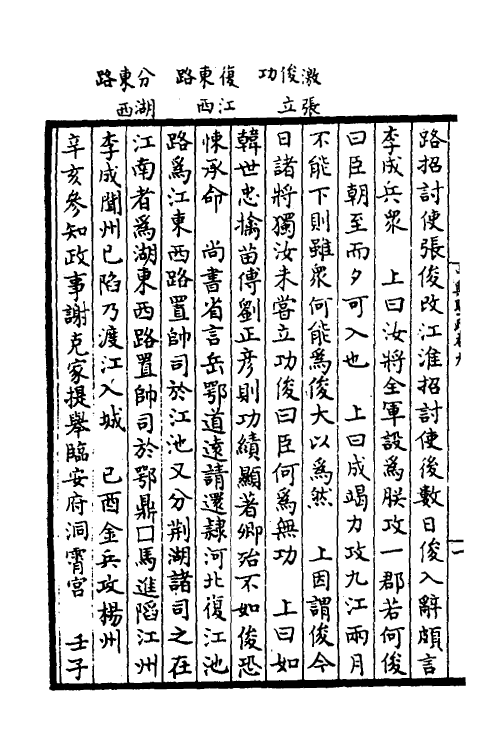 激張
俊立
功
復江
東西
路
分湖
東西
路
路招討使張俊改江淮招討使後數日俊入辭頗言
李成兵眾　上曰汝將全軍設為朕攻一郡若何俊
曰臣朝至而夕可入也　上曰成竭力攻九江兩月
不能下則雖眾何能為俊大以為然　上因謂俊今
日諸將獨汝未嘗立功俊曰臣何為無功　上曰如
韓世忠擒苗傅劉正彥則功績顯著卿殆不如俊恐
悚承命　尚書省言岳鄂道遠請還隸河北復江池
路為江東西路置帥司於江池又分荆湖諸司之在
江南者為湖東西路置帥司於鄂鼎口馬進䧟江州
李成聞州已陷乃渡江入城　己酉金兵攻楊州
辛亥參知政事謝克家提舉臨安府洞霄宮　壬子